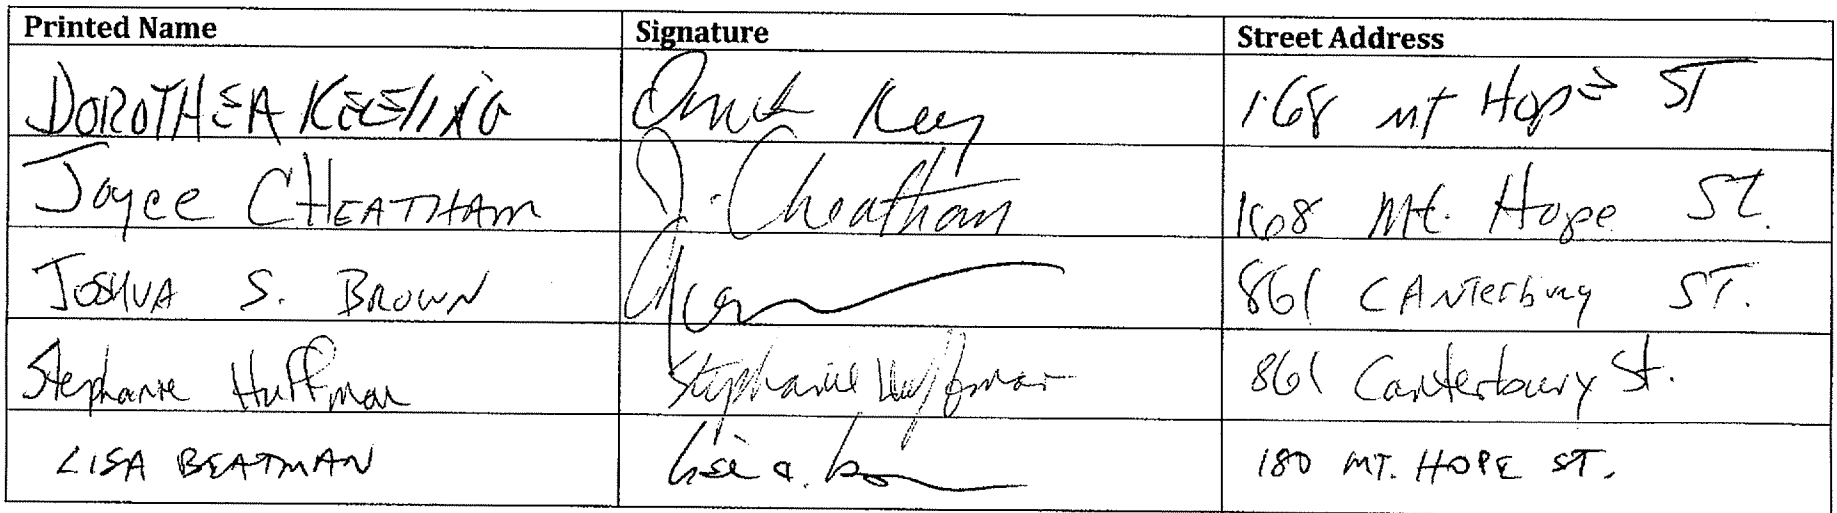 Printed Name Signature Street Address
DOROTHEA KEELING 168 Mt Hope ST
Joyce CHEATHAM J. Cheatham 168 Mt. Hope St.
JOSHUA S. BROWN 861 CANTerbury ST.
Stephanie Huffman Stephanie Huffman 861 Canterbury St.
LISA BEATMAN Lisa 180 MT. HOPE ST.